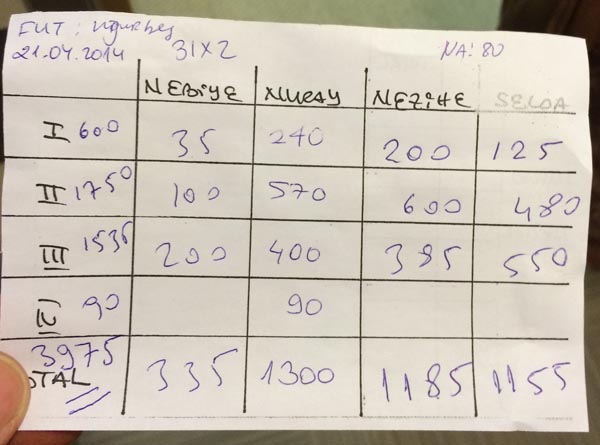 FUT :
21.04.2014 31x2 NA: 80
NEDİYE NURAY NEZİHE SELDA
I 600 35 240 200 125
II 1750 100 570 600 480
III 1535 200 400 385 550
IV 90 90
3975
TOTAL 335 1300 1185 1155